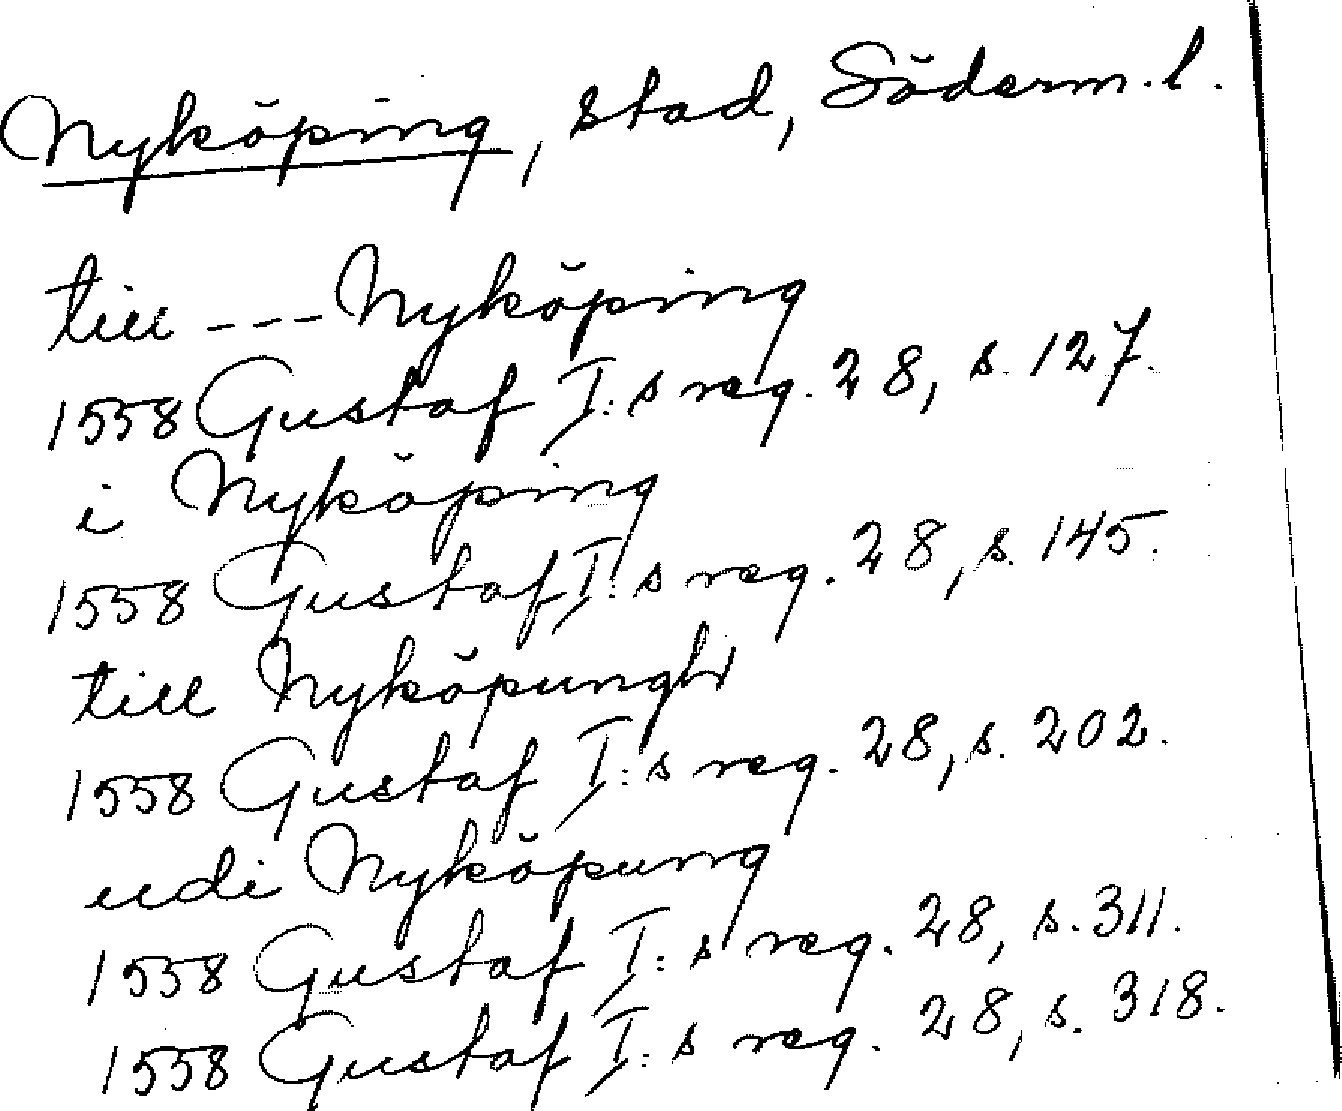 Nyköping, stad, Söderm. l.
till --- Nyköping
1558 Gustaf I:s reg. 28, s. 127.
i Nyköping
1558 Gustaf I:s reg. 28, s. 145.
till Nyköpungh
1558 Gustaf I:s reg. 28, s. 202.
udi Nyköpung
1558 Gustaf I:s reg. 28, s. 311.
1558 Gustaf I:s reg. 28, s. 318.